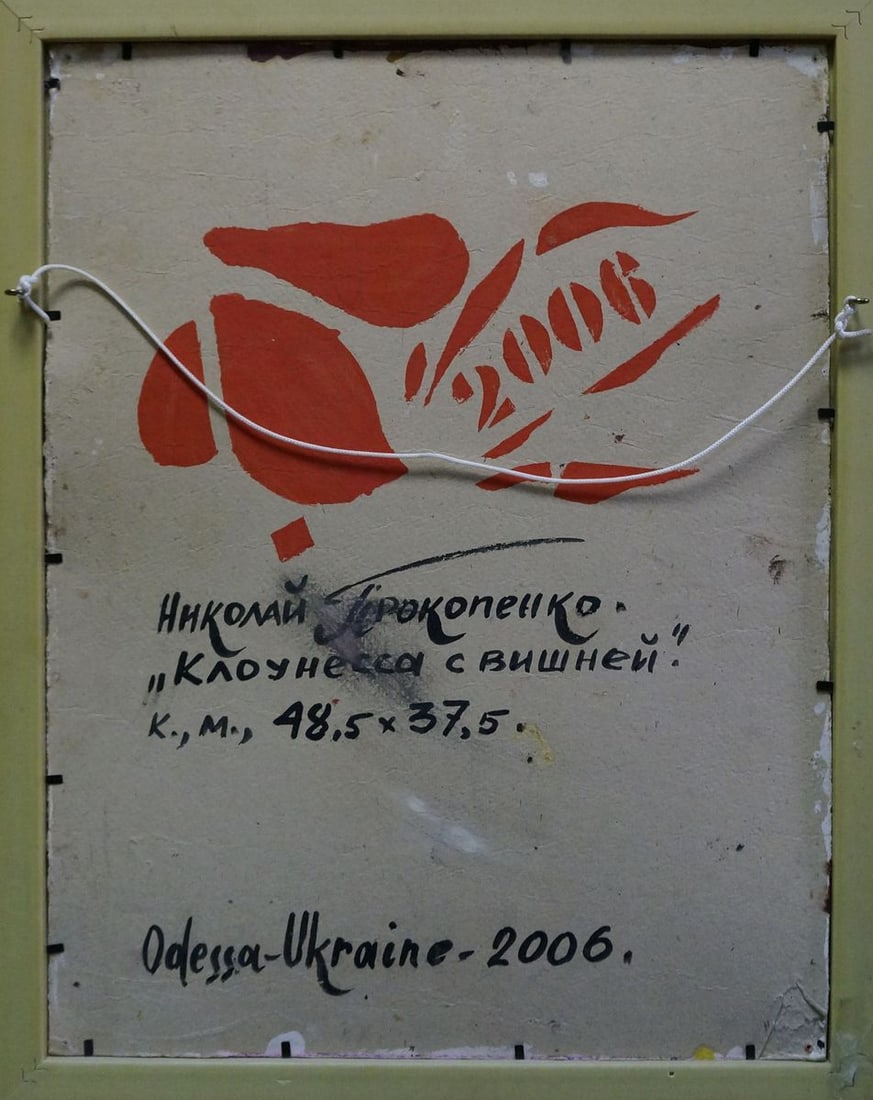 2006
Николай Прокопенко.
„Клоунесса с вишней".
к., м., 48,5 x 37,5.
Odessa-Ukraine-2006.